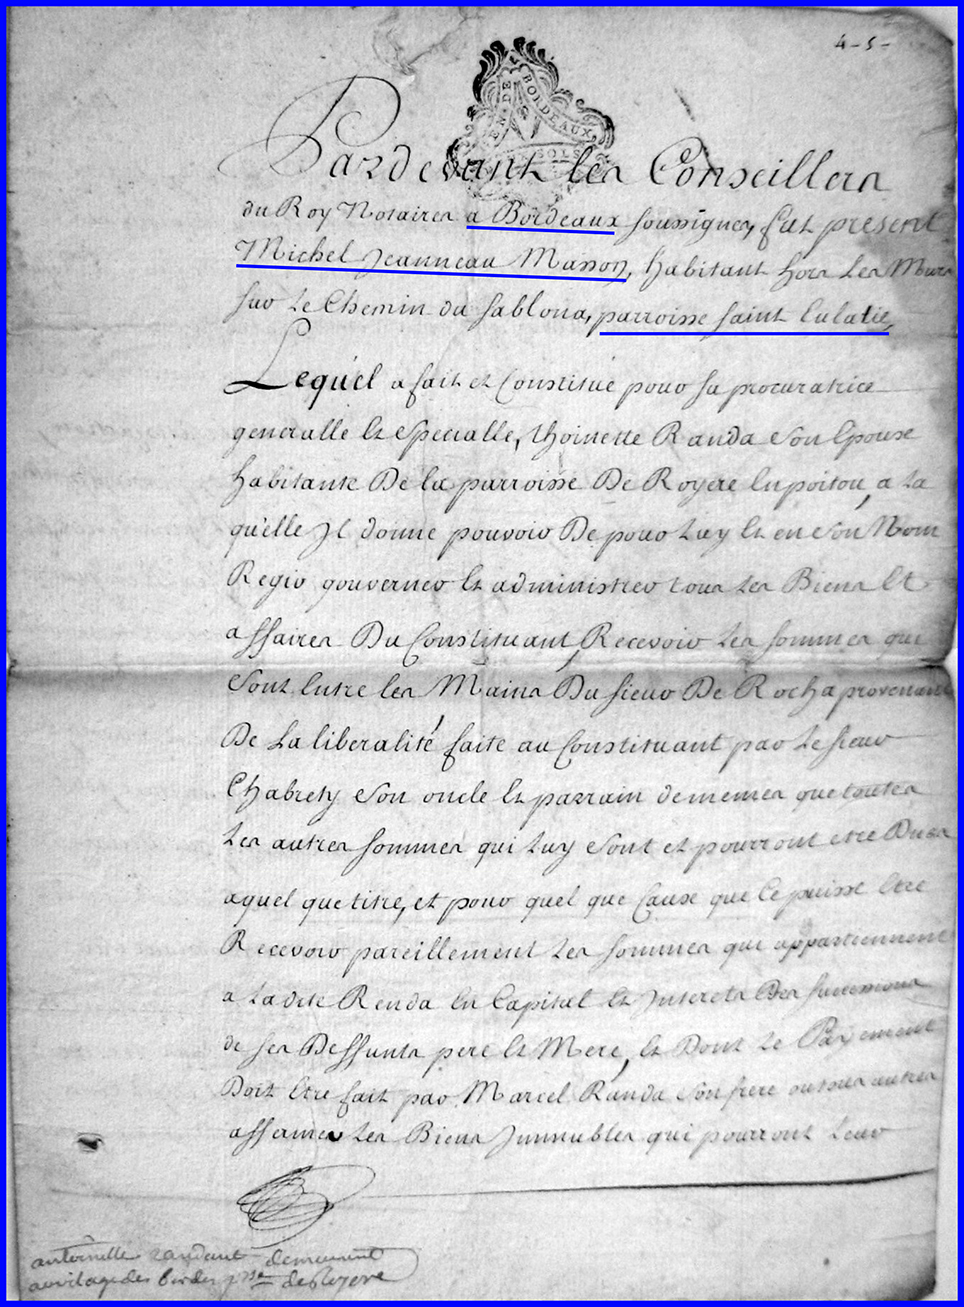 4-5-
GEN. DE BORDEAUX
SOLS
Pardevant les Conseillers
du Roy Notaires a Bordeaux soussignes, fut present
Michel Jeanneau Masson, habitant hors les Murs
sur le Chemin du Sablona, parroisse saint Eulalie,
Lequel a fait et Constitué pour sa procuratrice
generalle Et especialle, thoinette Randa son Epouse
habitante De la parroisse De Royere En poitou, a La
quelle Jl donne pouvoir De pour Luy Et en son Nom
Regir gouverner Et administrer tous Les Biens Et
affaires Du Constituant, Recevoir Les sommes qui
sont Entre les Mains Du sieur De Rocha provenant
De La liberalité faite au Constituant par Le sieur
Chabrety son oncle Et parrain de memes que toutes
Les autres sommes qui Luy sont et pourront etre Dues
a quel que titre, et pour quel que Cause que Ce puisse Etre
Recevoir pareillement Les sommes qui appartiennent
a Ladite Renda En Capital Et Jnterets Des successions
de ses Deffunts pere Et Mere, Et Dont Le Payement
Doit Etre fait par Marcel Randa son frere ou tous autres
affermer Les Biens Jmmubles qui pourront Leur
antoinette randaut demeurant
au vilage des bordes psse de Royere